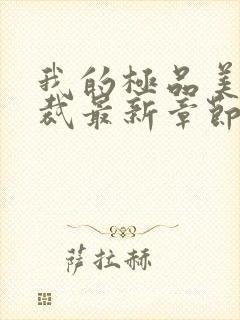 我的極品美
裁最新章節
薩拉赫